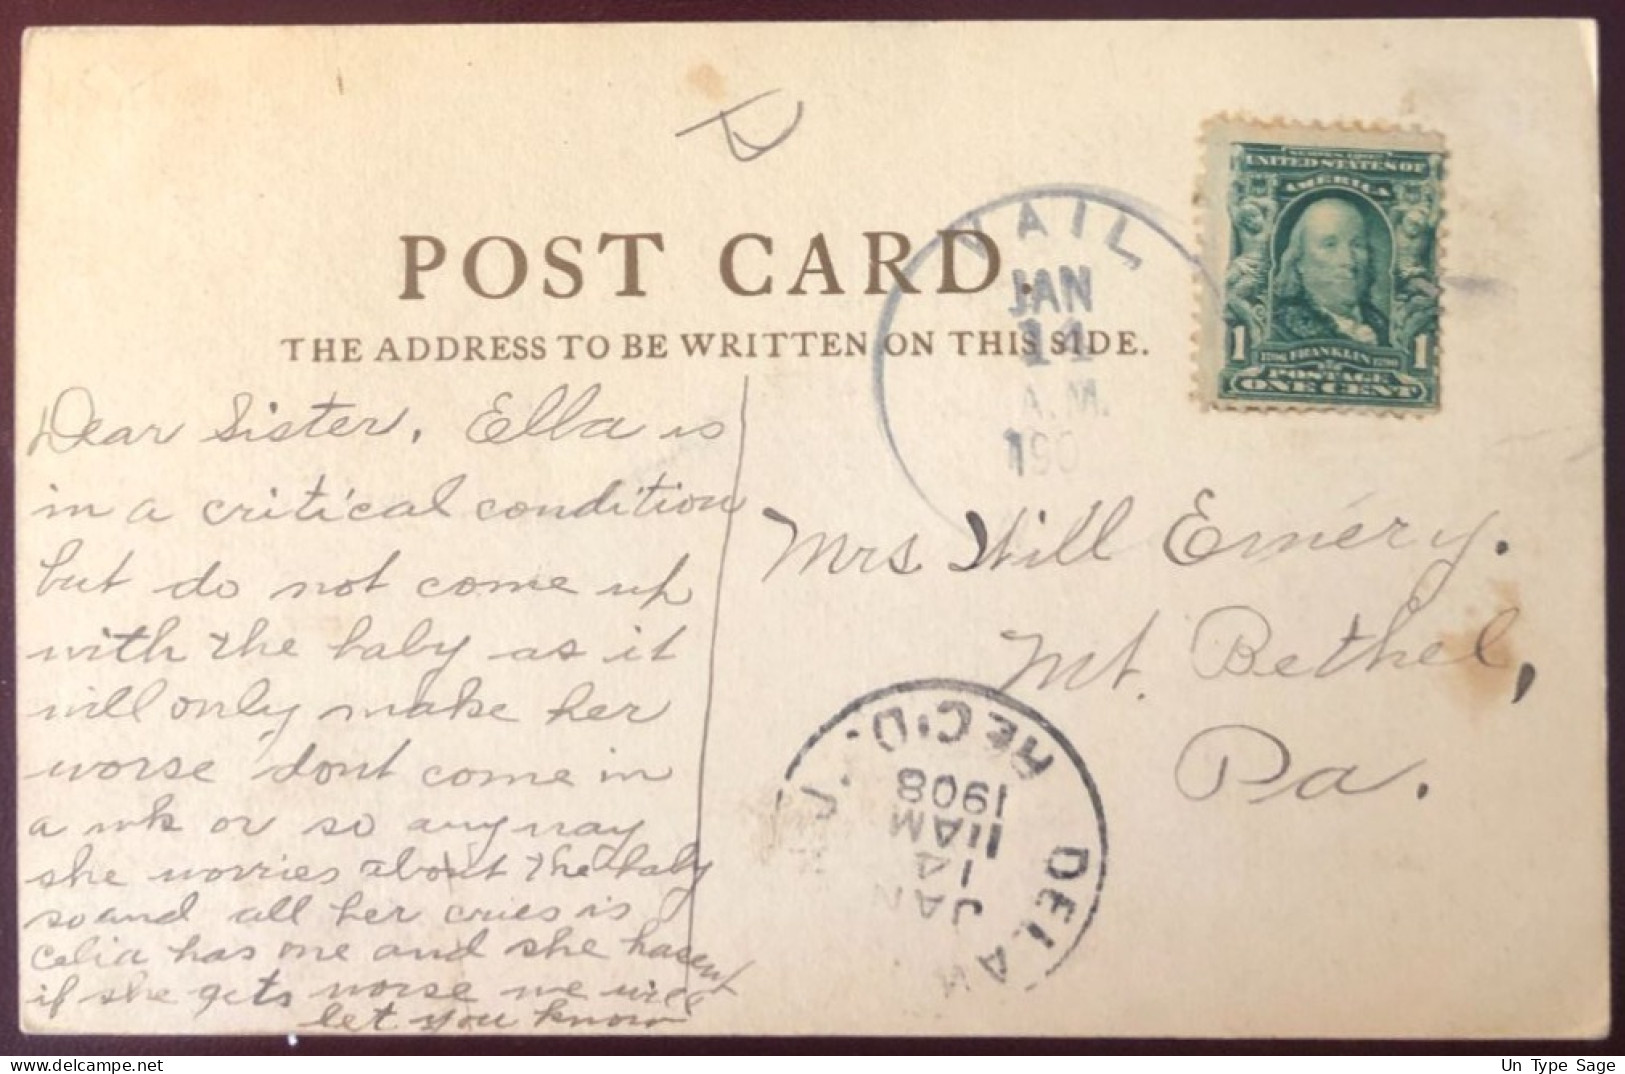 POST CARD.
THE ADDRESS TO BE WRITTEN ON THIS SIDE.
VAIL,
JAN
14
A.M.
190
SERIES 1902
UNITED STATES OF
AMERICA
1 1706 FRANKLIN 1790 1
POSTAGE
ONE CENT
Dear Sister, Ella is
in a critical condition
but do not come up
with the baby as it
will only make her
worse dont come in
a wk or so anyway
she worries about the baby
so and all her cries is
Celia has one and she hasent
if she gets worse we will
let you know
Mrs. Will Emery.
Mt. Bethel,
Pa.
DELAW
REC'D.
JAN
14
11 AM
1908
Un Type Sage